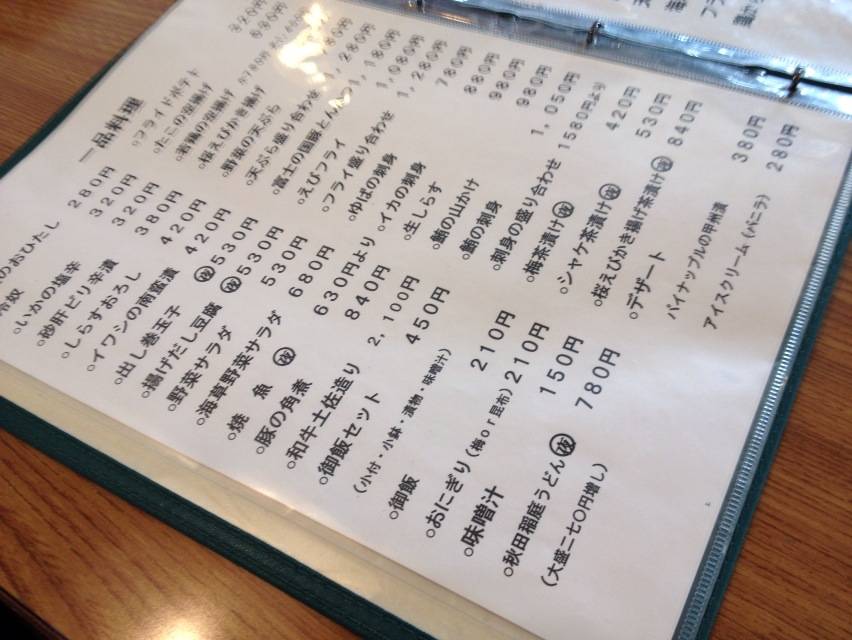 一品料理
冷奴 280円
のおひたし 320円
○いかの塩辛 320円
○砂肝ピリ辛漬 380円
○しらすおろし 420円
○イワシの南蛮漬 420円
○出し巻玉子 夜530円
○揚げだし豆腐 夜530円
○野菜サラダ 530円
○海草野菜サラダ 680円
○焼 魚 夜 630円より
○豚の角煮 840円
○和牛土佐造り 2,100円
○御飯セット 450円
(小付・小鉢・漬物・味噌汁)
○御飯 210円
○おにぎり(梅or昆布) 210円
○味噌汁 150円
○秋田稲庭うどん夜 780円
(大盛二七〇円増し)
○フライドポテト
○たこの空揚げ
○若鶏の空揚げ
○桜えびかき揚げ
○野菜の天ぷら
○天ぷら盛り合わせ
○富士の国豚とんかつ 1,180円
○えびフライ 1,080円
○フライ盛り合わせ 1,280円
○ゆばの刺身 780円
○イカの刺身 880円
○生しらす 980円
○鮪の山かけ 980円
○鮪の刺身 1,050円
○刺身の盛り合わせ 1580円より
○梅茶漬け夜 420円
○シャケ茶漬け夜 530円
○桜えびかき揚げ茶漬け夜 840円
○デザート
パイナップルの甲州漬 380円
アイスクリーム(バニラ) 280円